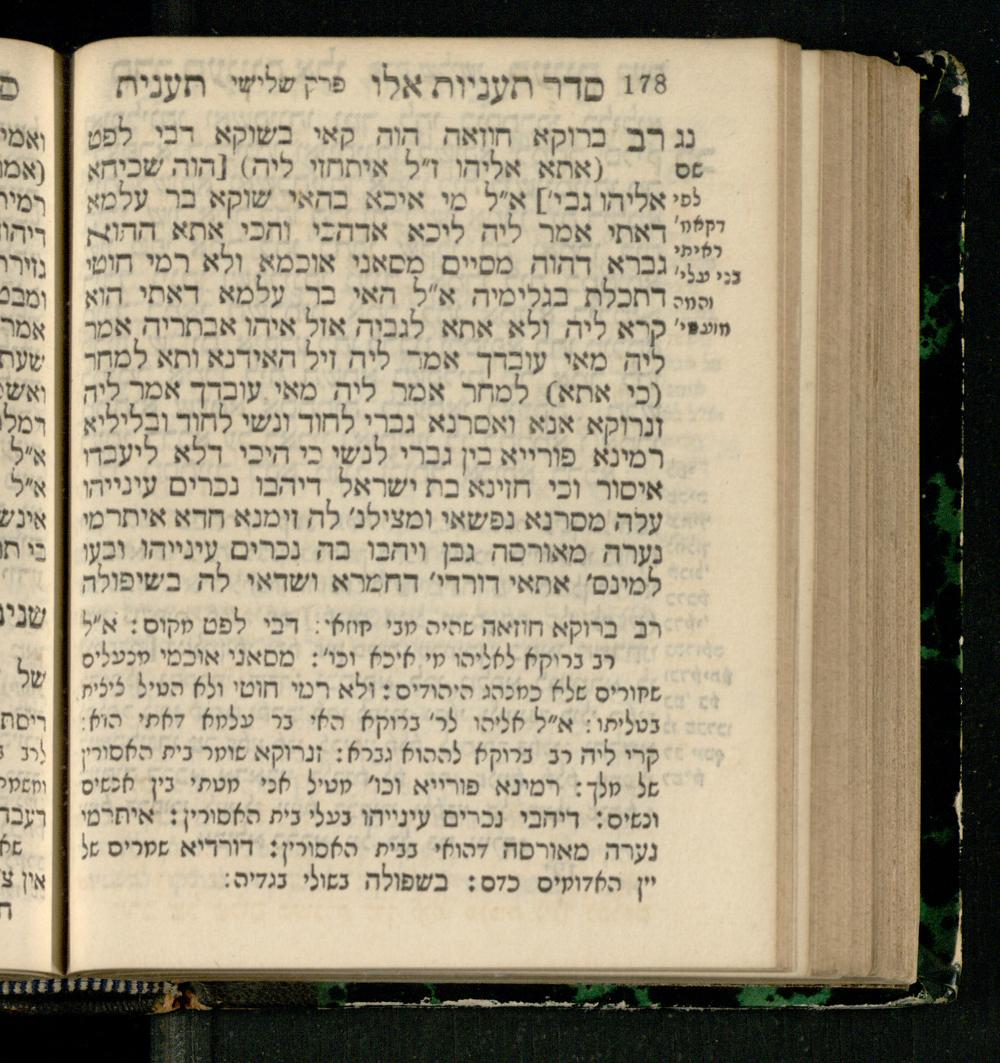 178 סדר תעניות אלו פרק שלישי תענית
נג רב ברוקא חוזאה הוה קאי בשוקא דבי לפט
שם (אתא אליהו ז״ל איתחזי ליה) [הוה שכיחא
לפי אליהו גבי׳] א״ל מי איכא בהאי שוקא בר עלמא
דקאמ׳ דאתי אמר ליה ליכא אדהכי והכי אתא ההוא
ראיתי גברא דהוה מסיים מסאני אוכמא ולא רמי חוטי
בני עלי׳
והמה דתכלת בגלימיה א״ל האי בר עלמא דאתי הוא
מועטי׳ קרא ליה ולא אתא לגביה אזל איהו אבתריה אמר
ליה מאי עובדך אמר ליה זיל האידנא ותא למחר
(כי אתא) למחר אמר ליה מאי עובדך אמר ליה
זנרוקא אנא ואסרנא גברי לחוד ונשי לחוד ובליליא
רמינא פורייא בין גברי לנשי כי היכי דלא ליעבדו
איסור וכי חזינא בת ישראל דיהבו נכרים עינייהו
עלה מסרנא נפשאי ומצילנ׳ לה זימנא חדא איתרמי
נערה מאורסה גבן ויהבו בה נכרים עינייהו ובעו
למינס׳ אתאי דורדי׳ דחמרא ושדאי לה בשיפולה
רב ברוקא חוזאה שהיה מבי חוזאי: דבי לפט מקום: א״ל
רב ברוקא לאליהו מי איכא וכו׳: מסאני אוכמי מנעלים
שחורים שלא כמנהג היהודים: ולא רמי חוטי ולא הטיל ציצית
בטליתו: א״ל אליהו לר׳ ברוקא האי בר עלמא דאתי הוא:
קרי ליה רב ברוקא לההוא גברא: זנרוקא שומר בית האסורין
של מלך: רמינא פורייא וכו׳ מטיל אני מטתי בין אנשים
ונשים: דיהבי נכרים עינייהו בעלי בית האסורין: איתרמי
נערה מאורסה דהואי בבית האסורין: דורדיא שמרים של
יין האדומים כדם: בשפולה בשולי בגדיה: